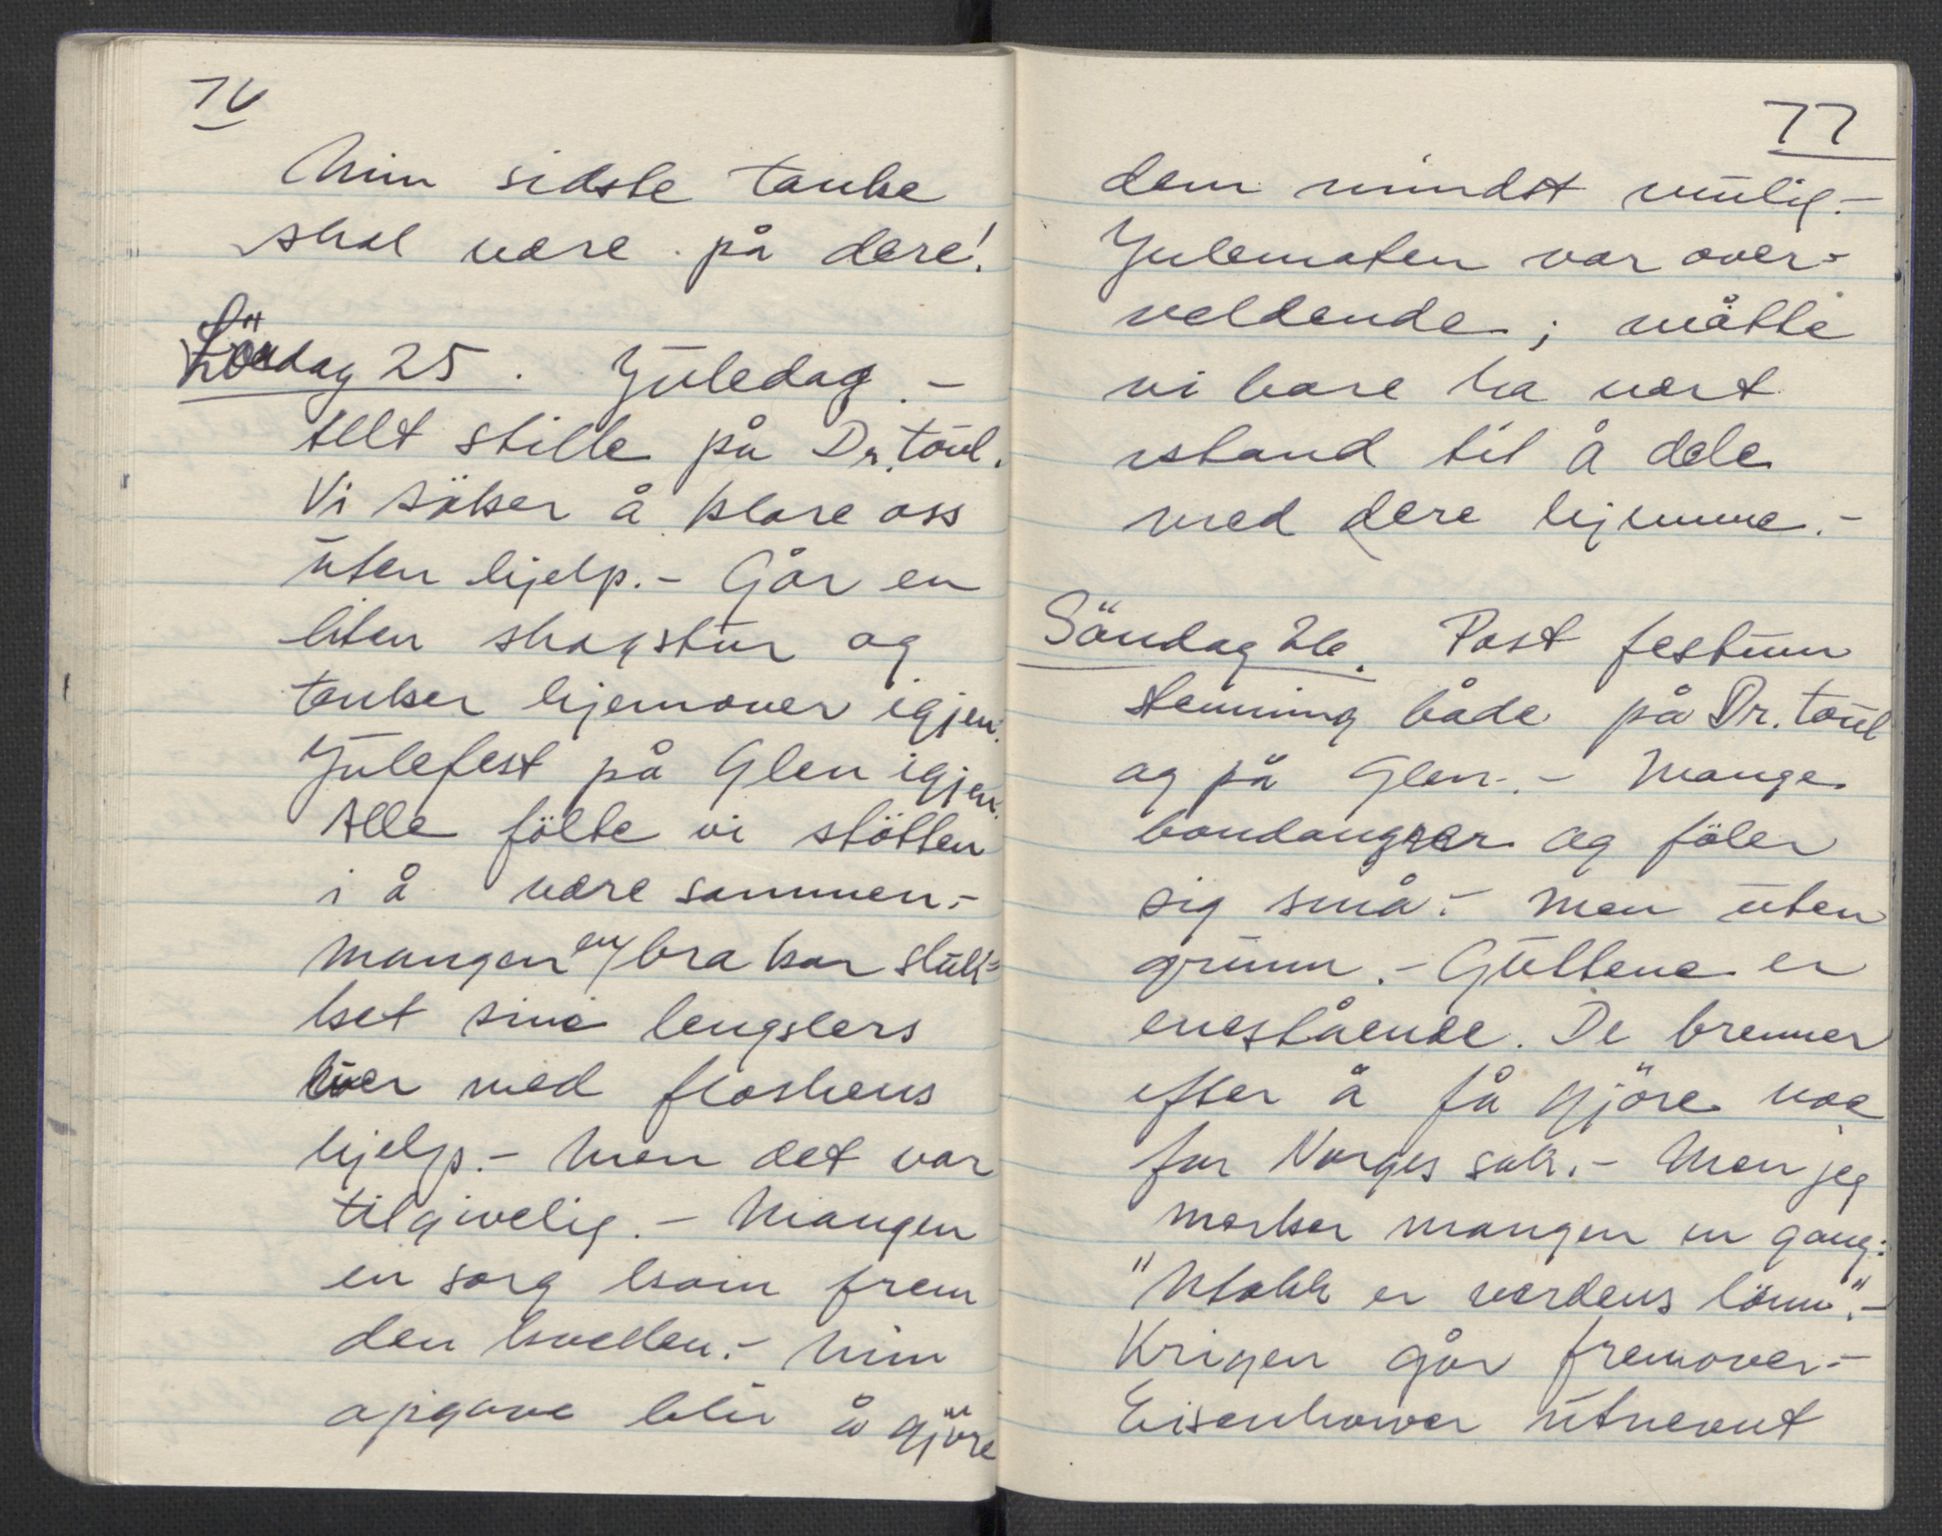 76
Min sidste tanke
skal være på dere!
Lördag 25. Juledag. -
Alt stille på Dr.toul.
Vi söker å klare oss
uten hjelp. - Går en
liten skogstur og
tanker hjemover igjen.
Julefest på Glen igjen.
Alle fölte vi stötten
i å være sammen. -
Mangen en bra kar sluk-
ket sine lengslers
luer med flaskens
hjelp. - Men det var
tilgivelig. - Mangen
en sorg kom frem
den kvellen. - Min
opgave blir å gjöre
77
dem mindst mulig. -
Julematen var over-
veldende; måtte
vi bare ha vært
istand til å dele
med dere hjemme. -
Söndag 26. Post festum
stemning både på Dr. toul
og på Glen. - Mange
bondangrer og föler
sig små. - Men uten
grunn. - Guttene er
enestående. De brenner
efter å få gjöre noe
for Norges sak. - Men jeg
merker mangen en gang:
"Utakk er verdens lönn". -
Krigen går fremover. -
Eisenhower utnevnt